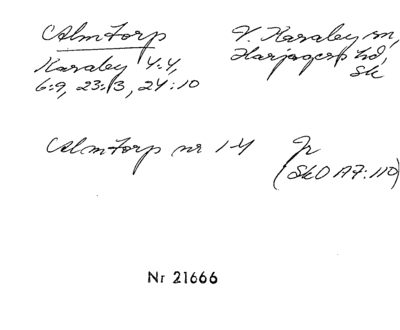 Almtorp
V. Karaby sn,
Harjagers hd,
Sk
Karaby 4:4,
6:9, 23:13, 24:10
Almtorp nr 1-4
Jr
(SkO A7:110)
Nr 21666